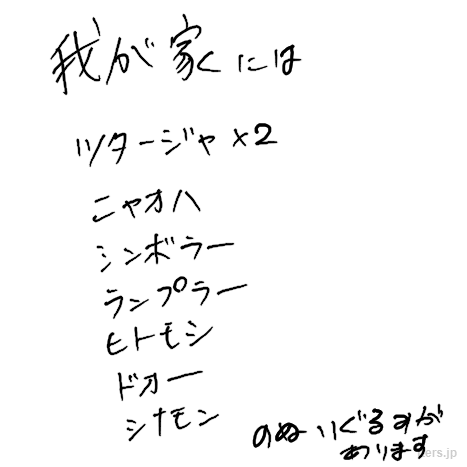 我が家には
ツタージャ×2
ニャオハ
シンボラー
ランプラー
ヒトモシ
ドオー
シナモン
のぬいぐるみが
あります